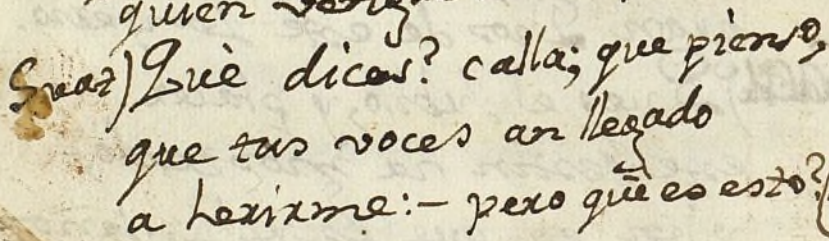 quien
Suaz) Què dices? calla; que pienso,
que tus voces an llegado
a herirme:- pero què es esto?